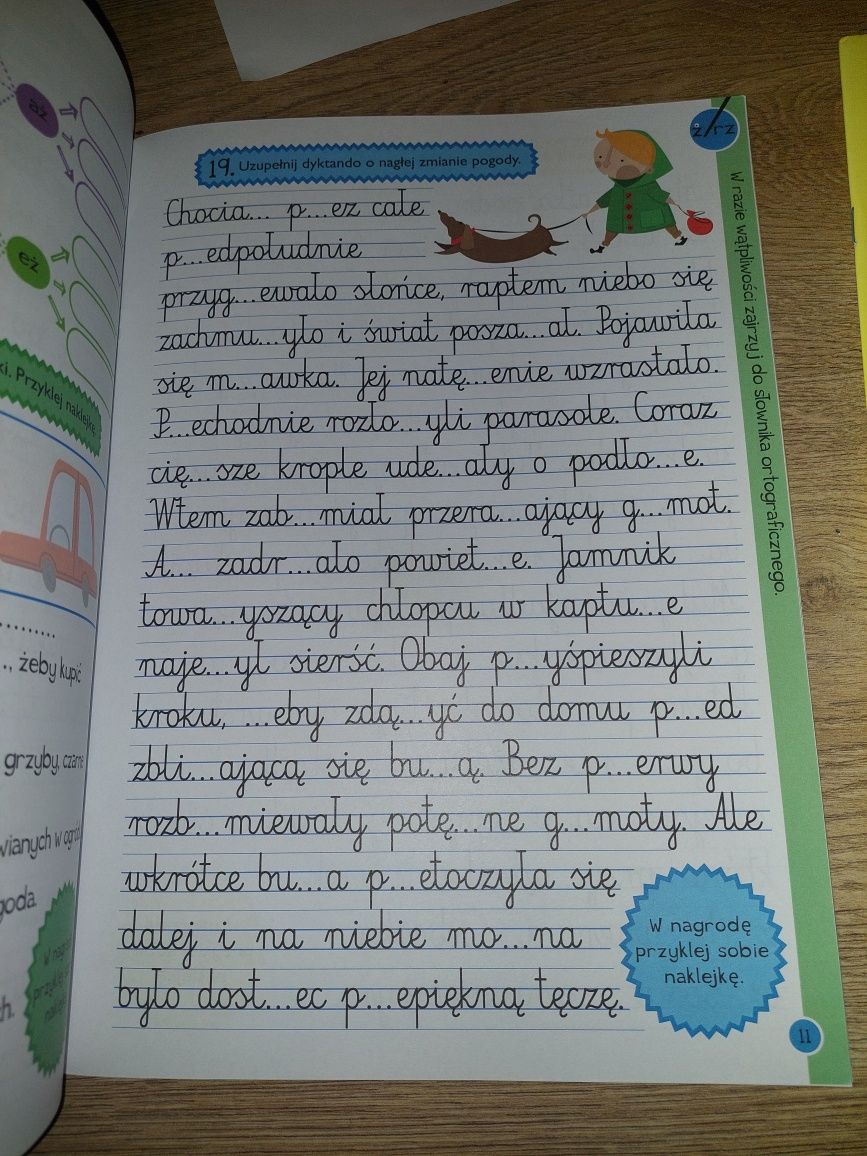 aż
eż
ki. Przyklej naklejkę
.........
., żeby kupić
grzyby, czarne
wianych w ogró
goda.
h.
ż/rz
19. Uzupełnij dyktando o nagłej zmianie pogody.
Chocia... p...ez całe
p...edpołudnie
przyg...ewało słońce, raptem niebo się
zachmu...yło i świat posza...ał. Pojawiła
się m...awka. Jej natę...enie wzrastało.
P...echodnie rozło...yli parasole. Coraz
cię...sze krople ude...ały o podło...e.
Wtem zab...miał przera...ający g...mot.
A... zadr...ało powiet...e. Jamnik
towa...yszący chłopcu w kaptu...e
naje...ył sierść. Obaj p...yśpieszyli
kroku, ...eby zdą...yć do domu p...ed
zbli...ającą się bu...ą. Bez p...erwy
rozb...miewały potę...ne g...moty. Ale
wkrótce bu...a p...etoczyła się
dalej i na niebie mo...na
było dost...ec p...epiękną tęczę.
W nagrodę
przyklej sobie
naklejkę.
W razie wątpliwości zajrzyj do słownika ortograficznego.
11